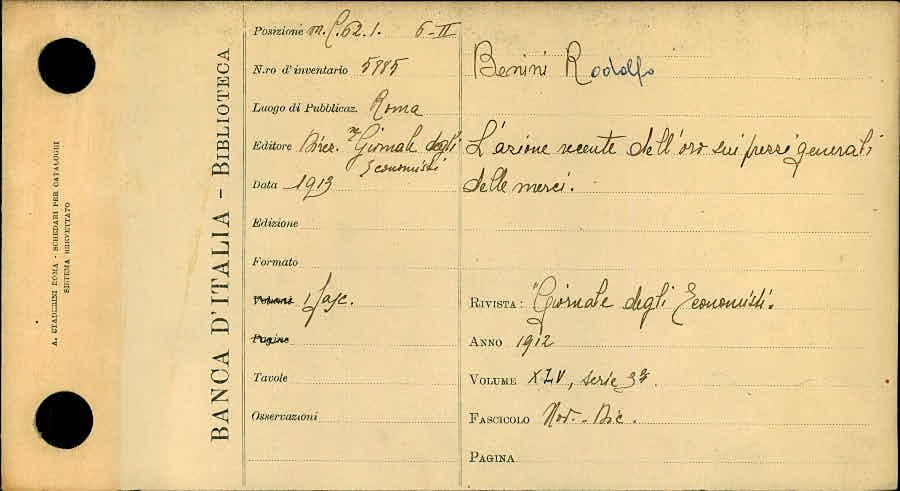 A. STADERINI ROMA - SCHEDARI PER CATALOGHI
SISTEMA BREVETTATO
BANCA D'ITALIA - BIBLIOTECA
Posizione m. C. 62. 1. 6-II
N.ro d'inventario 5995
Luogo di Pubblicaz. Roma
Editore Direz. "Giornale degli
Economisti
Data 1913
Edizione
Formato
1 fasc.
Pagine
Tavole
Osservazioni
Benini Rodolfo
L'azione recente dell'oro sui prezzi generali
delle merci.
RIVISTA: "Giornale degli Economisti.
ANNO 1912
VOLUME XLV, serie 3ª.
FASCICOLO Nov. - Dic.
PAGINA